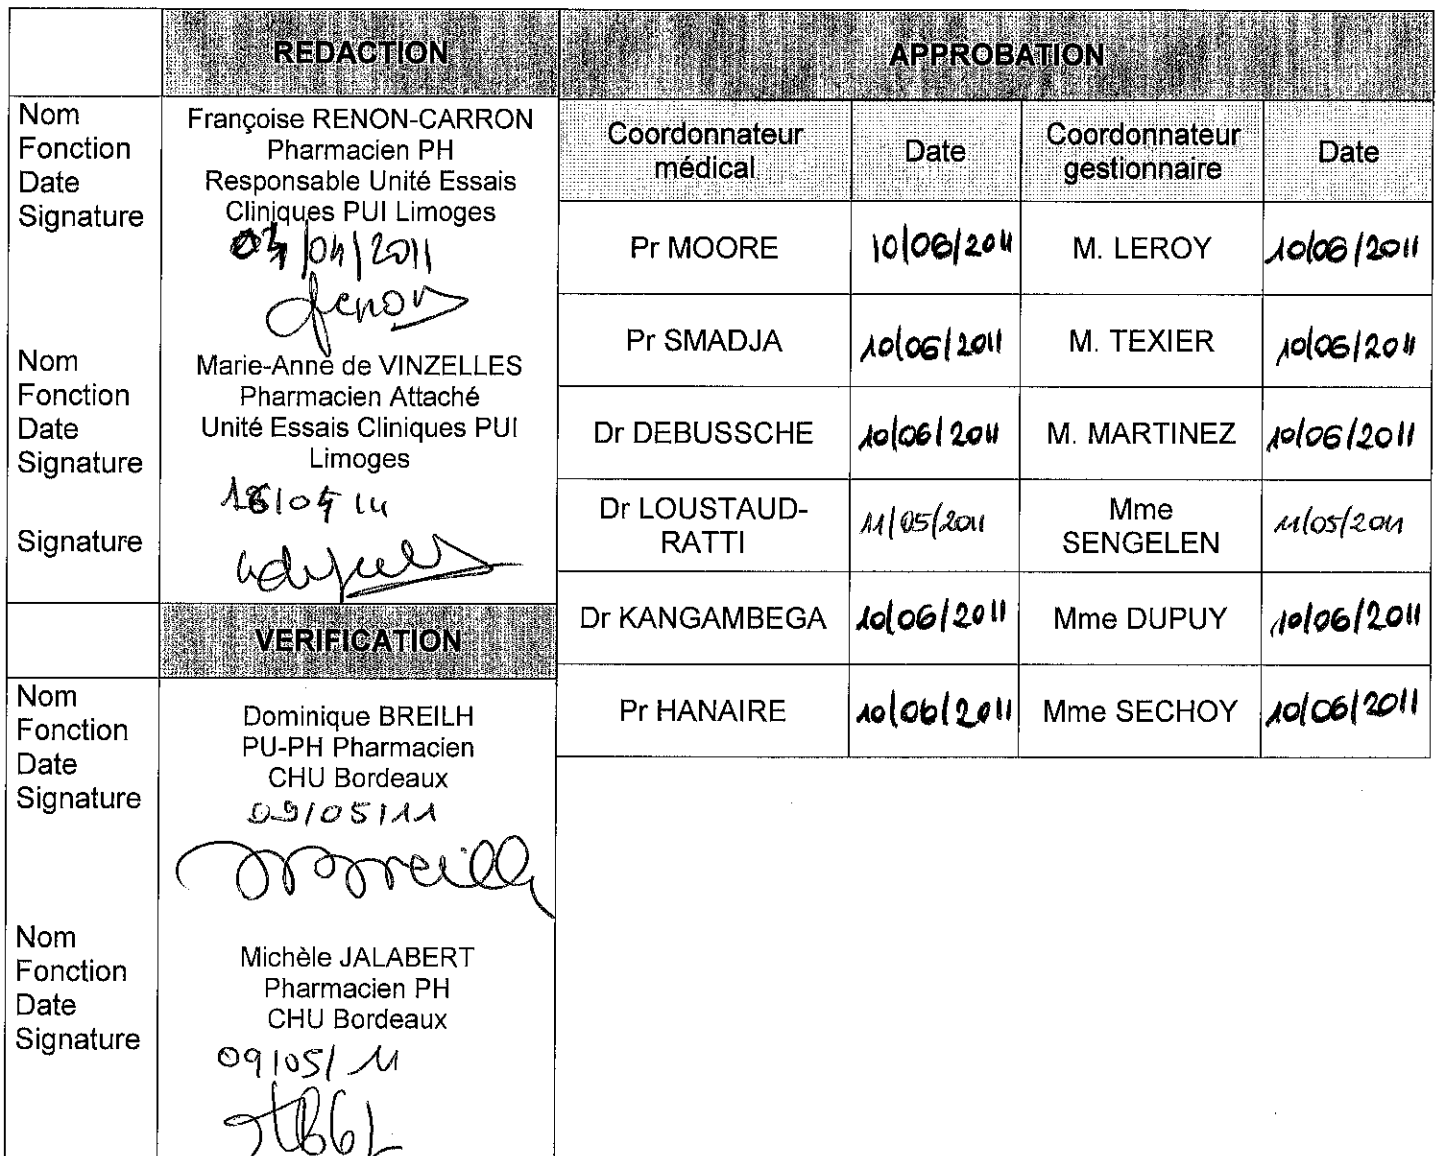 REDACTION
Nom
Fonction
Date
Signature
Françoise RENON-CARRON
Pharmacien PH
Responsable Unité Essais
Cliniques PUI Limoges
/04/2011
Nom
Fonction
Date
Signature
Signature
Marie-Anne de VINZELLES
Pharmacien Attaché
Unité Essais Cliniques PUI
Limoges
VERIFICATION
Nom
Fonction
Date
Signature
Dominique BREILH
PU-PH Pharmacien
CHU Bordeaux
09/05/11
Nom
Fonction
Date
Signature
Michèle JALABERT
Pharmacien PH
CHU Bordeaux
09/05/11
APPROBATION
Coordonnateur médical Date Coordonnateur gestionnaire Date
Pr MOORE 10/06/2011 M. LEROY 10/06/2011
Pr SMADJA 10/06/2011 M. TEXIER 10/06/2011
Dr DEBUSSCHE 10/06/2011 M. MARTINEZ 10/06/2011
Dr LOUSTAUD-RATTI 11/05/2011 Mme SENGELEN 11/05/2011
Dr KANGAMBEGA 10/06/2011 Mme DUPUY 10/06/2011
Pr HANAIRE 10/06/2011 Mme SECHOY 10/06/2011